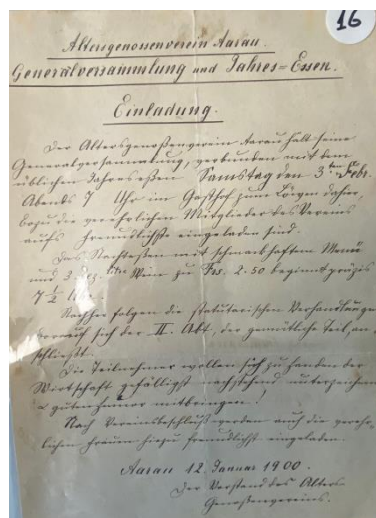 16
Altersgenossenverein Aarau.
Generalversammlung und Jahres=Essen.
Einladung.
Der Altersgenoßenverein Aarau hält seine
Generalversammlung, verbunden mit dem
üblichen Jahresessen. Samstag den 3ten Febr.
Abends 7 Uhr im Gasthof zum Löwen dahier,
wozu die verehrlichen Mitglieder des Vereins
aufs freundlichste eingeladen sind.
Das Nachteßen mit schmackhaftem Menü
und 3 dez. Wein zu Frs. 2.50 beginnt präzis
7 1/2 Uhr.
Nachher folgen die statutarischen Verhandlungen
worauf sich der II. Abt., der gemütliche Teil, an-
schließt.
Die Teilnehmer wollen sich zu Handen der
Wirtschaft gefälligst nachstehend unterzeichnen
& guten Humor mitbringen!
Nach Vereinsbeschluß werden auch die verehr-
lichen Frauen hiezu freundlichst eingeladen.
Aarau 12. Januar 1900.
Der Vorstand des Alters-
Genoßenvereins.